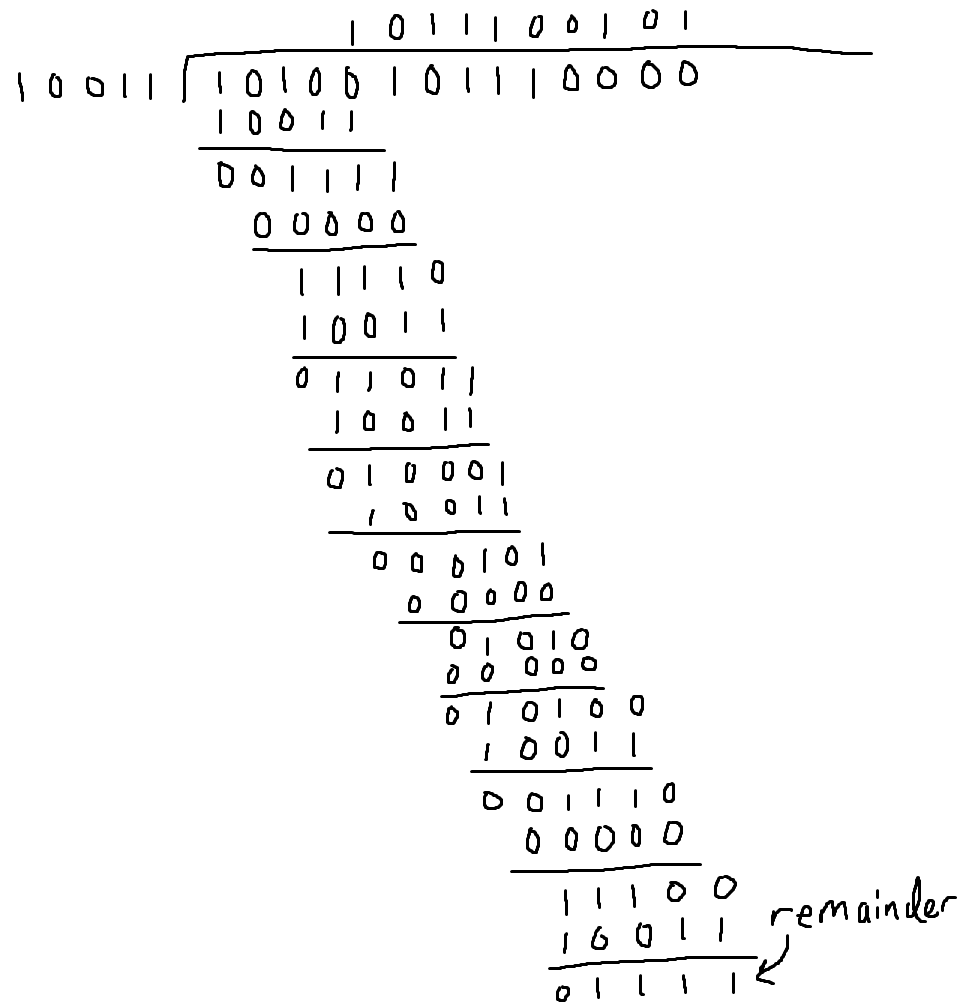 1011100101
10011 10100101110000
10011
001111
00000
11110
10011
011011
10011
010001
10011
000101
00000
01010
00000
010100
10011
001110
00000
11100
10011 remainder
01111